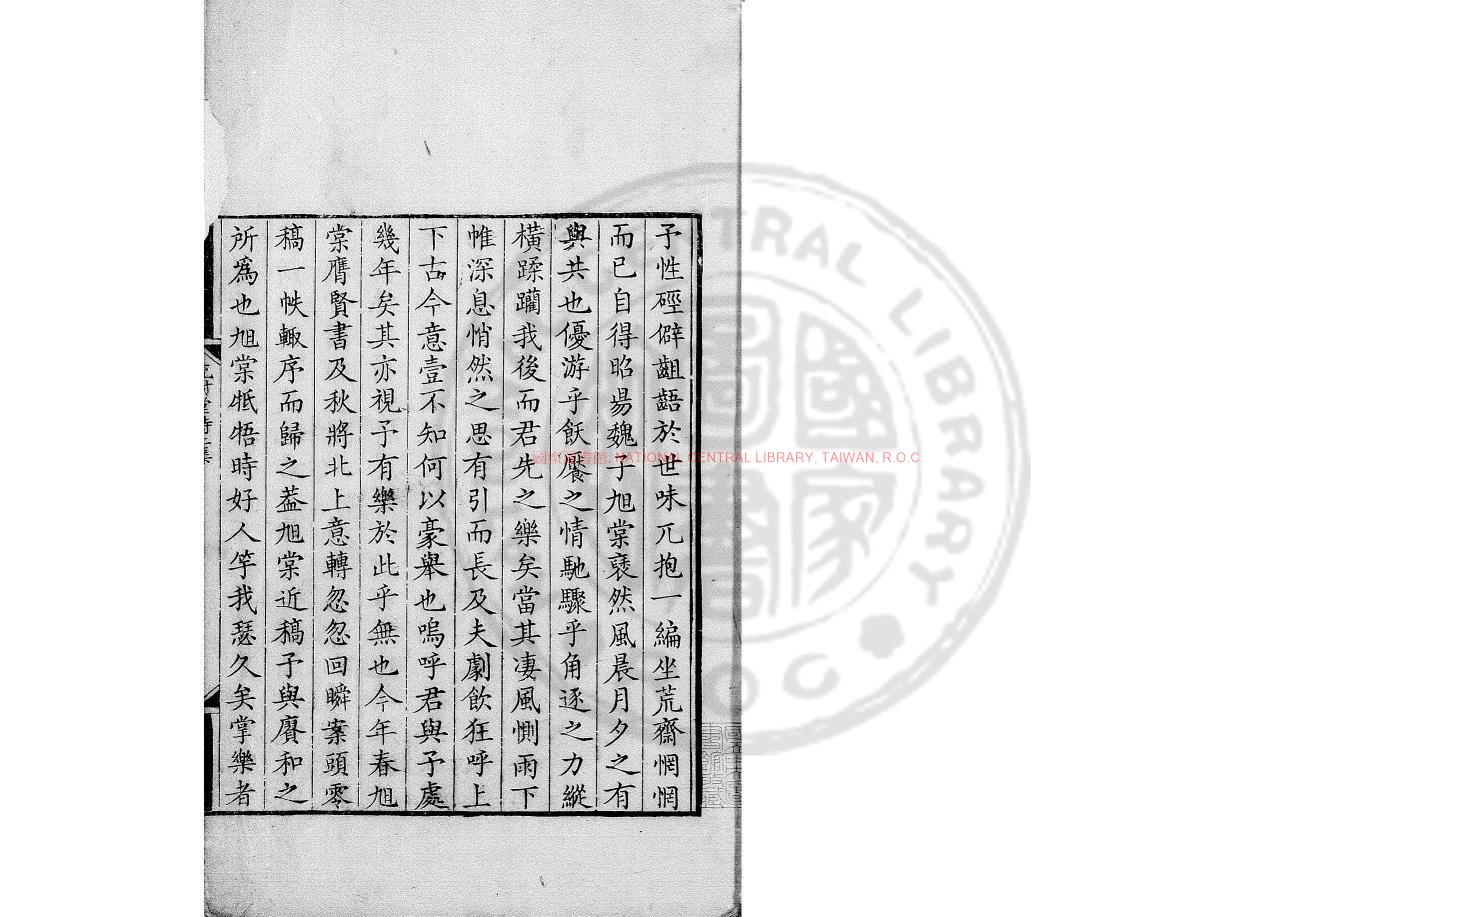 予性硜僻齟齬於世味兀抱一編坐荒齋惘惘
而已自得昭昜魏子旭棠裦然風晨月夕之有
與共也優游乎飫饜之情馳驟乎角逐之力縱
橫蹂躪我後而君先之樂矣當其凄風惻雨下
帷深息悄然之思有引而長及夫劇飲狂呼上
下古今意壹不知何以豪舉也嗚呼君與予處
幾年矣其亦視予有樂於此乎無也今年春旭
棠膺賢書及秋將北上意轉忽忽回瞬案頭零
稿一帙輙序而歸之葢旭棠近稿予與賡和之
所爲也旭棠牴牾時好人竽我瑟久矣掌樂者
國家圖書館, NATIONAL CENTRAL LIBRARY, TAIWAN, R.O.C.
CENTRAL LIBRARY
R.O.C
國家圖書館